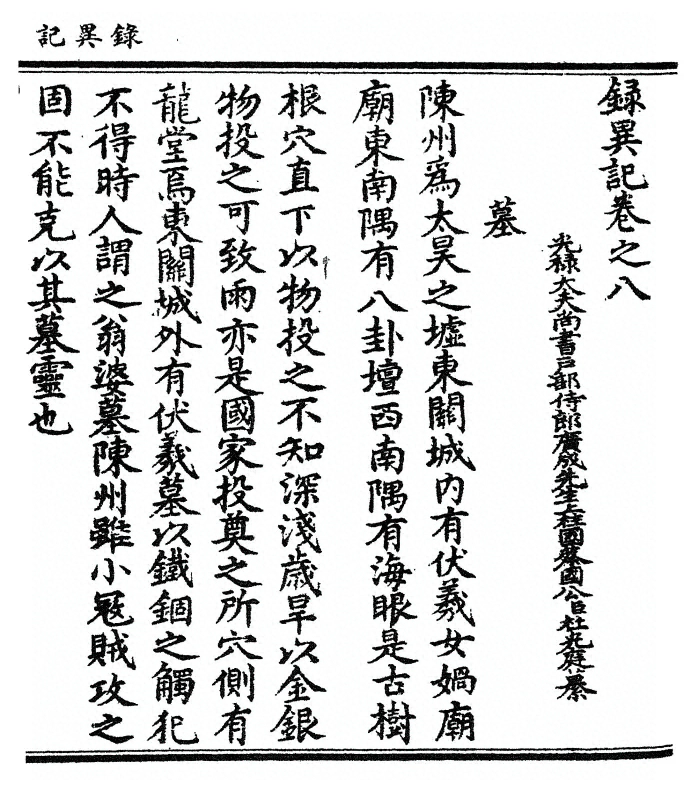 錄異記
録異記卷之八
光祿大夫尚書戸部侍郎廣成先生上柱國蔡國公臣杜光庭纂
墓
陳州爲太昊之墟東關城內有伏羲女媧廟
廟東南隅有八卦壇西南隅有海眼是古樹
根穴直下以物投之不知深淺歲旱以金銀
物投之可致雨亦是國家投奠之所穴側有
龍堂焉東關城外有伏羲墓以鐵錮之觸犯
不得時人謂之翁婆墓陳州雖小冦賊攻之
固不能克以其墓靈也